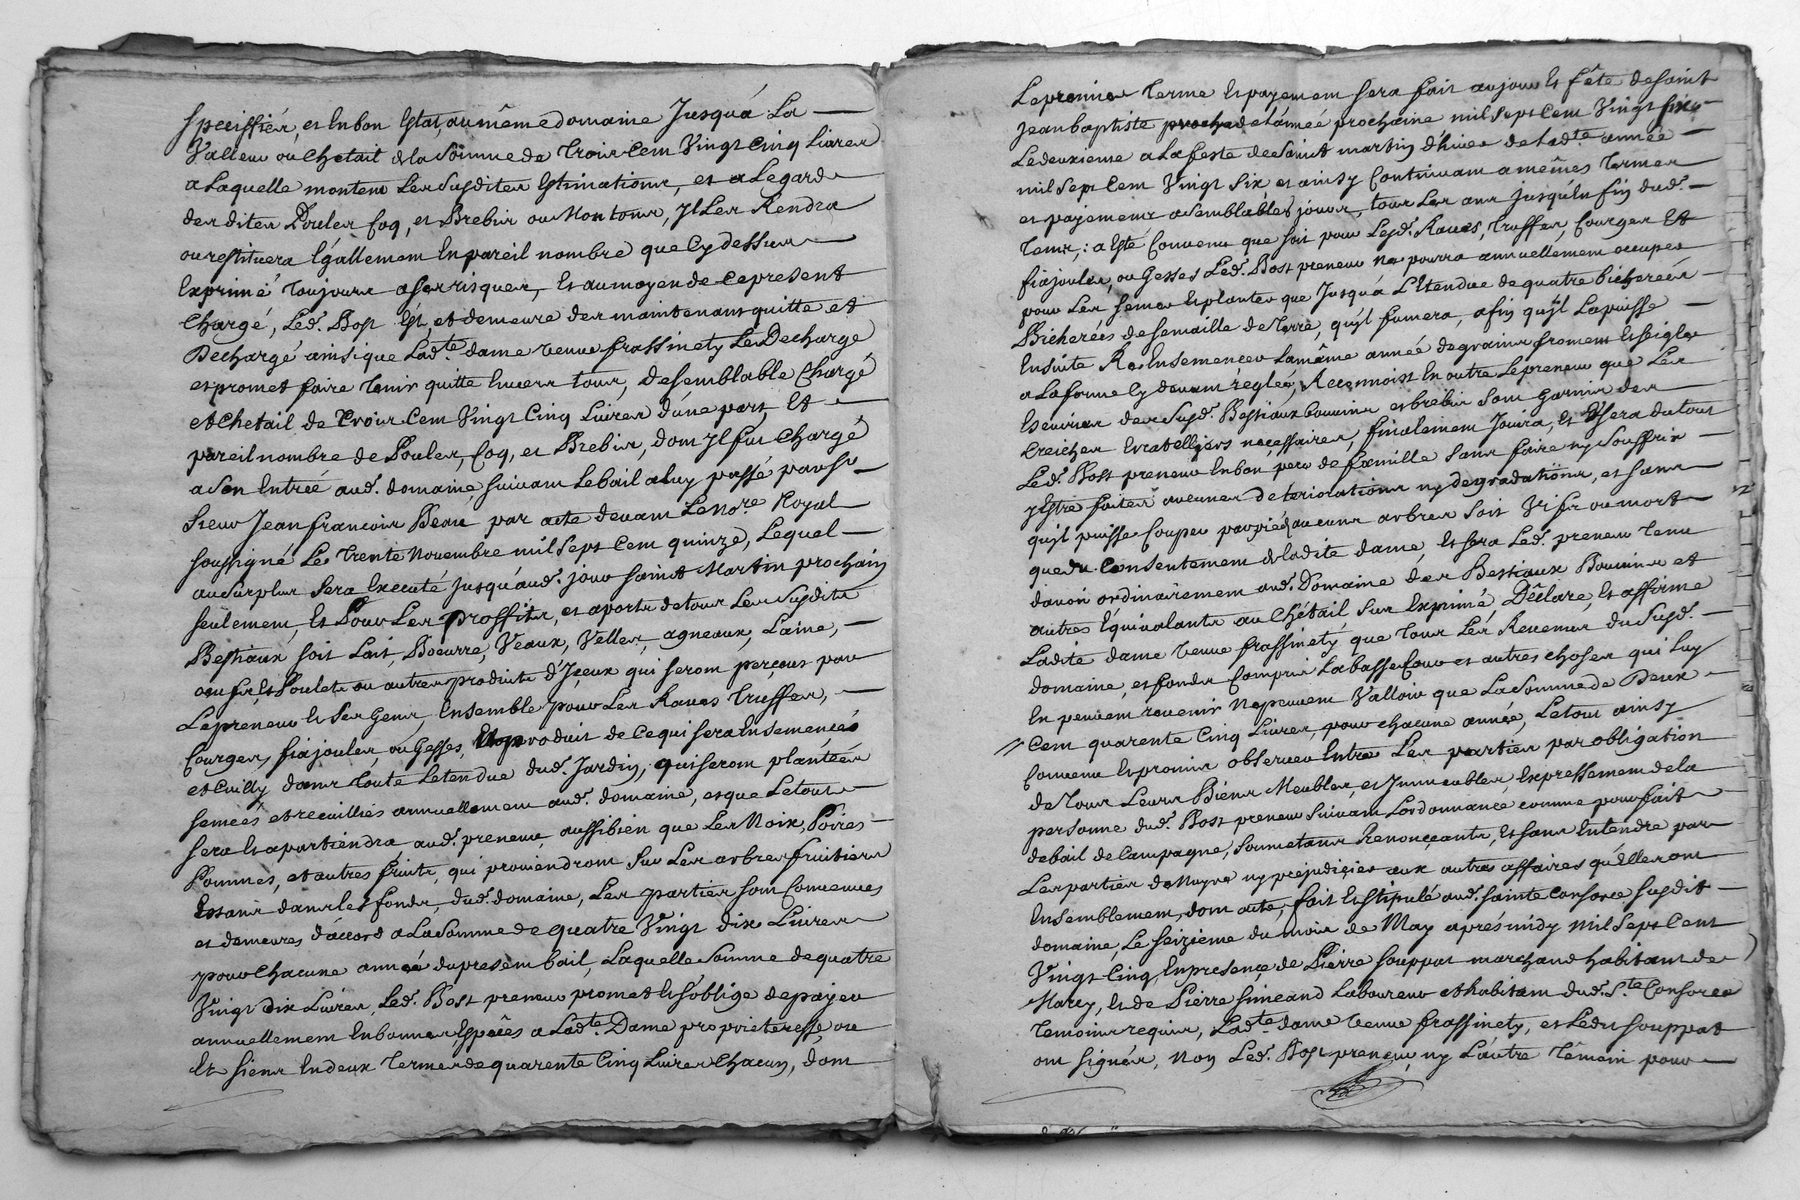 speciffiés, et En bon Estat, au même domaine Jusqu'á La
Valleur ou Chetail de la Somme de Trois Cent Vingt Cinq Livres
a Laquelle montent Les Susdites Estimations, et a Legard
des dites Poules Coq, et Brebis ou Moutons, Jl Les Rendra
ou restituera Egallement En pareil nombre que Cy dessus
Exprimé Toujours a Ses risques, Et au moyen de Ce present
Chargé, Led. Bost Est, et demeure des maintenant quitte et
Dechargé ainsi que Ladte dame veuve frassinety Le Decharge
et promet faire Tenir quitte Envers tous, de semblable Chargé
et Chetail de Trois Cent Vingt Cinq Livres d'une part, Et
pareil nombre de Poules, Coq, et Brebis, dont Jl fut Chargé
a Son Entréé aud. domaine, suivant Le bail a luy passé par Sr
Sieur Jean francois Beau par acte devant Le Nore Royal
soussigné Le Trente Novembre mil Sept Cent quinze, Lequel
au Surplus Sera Executé Jusqu'áud. jour saint Martin prochain
seulement, Et Pour Les proffits, et aports de tous Les Susdits
Bestiaux soit Lait, Boeurre, Veaux, Velles, agneaux, Laine,
oeufs, Et Poulets ou autres produits d'Jçeux qui seront perçeus par
Le preneur Et Ses Gens, Ensemble pour Les Raves Truffes,
Courges, fiajoules, ou Gesses, Et produit de Ce qui sera Ensemencés
et Cuilly dans Toute L'etendue dud. Jardin, qui seront plantéés
semeés et recuillies annuellement aud. domaine, et que Le tout
sera Et apartiendra aud. preneur, aussi bien que Les Noix, Poires
Pommes, et autres fruits, qui proviendront Sur Les arbres fruitiers
Essans dans les fonds, dud. domaine, Les parties sont Convenues
et demeures d'áccord a La Somme de quatre Vingt dix Livres
pour Chacune annéé du present bail, Laquelle Somme de quatre
Vingt dix Livres, Led. Bost preneur promet Et s'oblige de payer
annuellement En bonnes Espeçes a Ladte Dame proprieteresse, ou
Et siens En deux Termes de quarente Cinq Livres Chacun, dont
Le premier Terme Et payement sera fait au jour Et fête de saint
Jean baptiste de L'année prochaine mil sept Cent Vingt six
Le deuxieme a La feste de Saint martin d'hiver de Ladte année
mil sept Cent Vingt Six, et ainsy Continuant a mêmes Termes
et payements a semblables jours, tous Les ans Jusqu'En fin dud.
Tems,: a Esté Convenu que soit pour Lesd. Raves, Truffes, Courges Et
fiajoules, ou Gesses Led. Bost preneur Ne pourra annuellement occuper
pour Les semer Et planter que Jusqu'á L'Etendue de quatre bicherées
Bicherées de semaille de Terre, qu'jl fumera, afin qu'jl La puisse
Ensuite R'Ensemencer La même année de grains froment Et seigle
a La forme Cy devant régleé, Reconnoist En outre Le preneur que Les
Escuries des Susd. Bestiaux bouvins et brebis sont garnies des
Creiches Et ratelliers necessaires, finalement Jouira, Et Usera du tout
Led. Bost preneur En bon pere de famille Sans faire ny Souffrir
y Estre faites aucunes deteriorations ny degradations, et sans
qu'jl puisse Couper par pied aucuns arbres soit Vifs ou morts
que du Consentement de Ladite dame, Et sera Led. preneur Tenu
d'avoir ordinairement aud. Domaine des Bestiaux Bouvins et
autres Equivalants au Chétail Sus Exprimé, Déclare, Et affirme
Ladite dame veuve frassinety, que Tous Les Revenus du Susd.
domaine, et fonds Compris La basse Cour et autres choses qui Luy
En peuvent revenir Ne peuvent Valloir que La Somme de Deux
Cent quarente Cinq Livres, pour chacune année, Le tout ainsy
Convenu Et promis observer Entre Les parties par obligation
de Tous Leurs Biens Meubles, et Jmmeubles, Expressement de la
personne dud. Bost preneur Suivant L'ordonnance comme pour fait
de bail de Campagne, soumetans Renonçeants, Et sans Entendre par
Les parties de Nuyre ny prejudicier aux autres affaires qu'Elles ont
Ensemblement, dont acte, fait Et Stipulé aud. Sainte Consorce Susdit
domaine, Le seizieme du mois de May aprés midy mil Sept Cent
Vingt Cinq, En presençe de Pierre Souppat marchand habitant de
Marcy, Et de Pierre Simeand Laboureur et habitant dud. Ste Consorce
Temoins requis, Ladte dame veuve frassinety, et Ledit Souppat
ont signés, Non Led. Bost preneur, ny L'autre Témoin pour